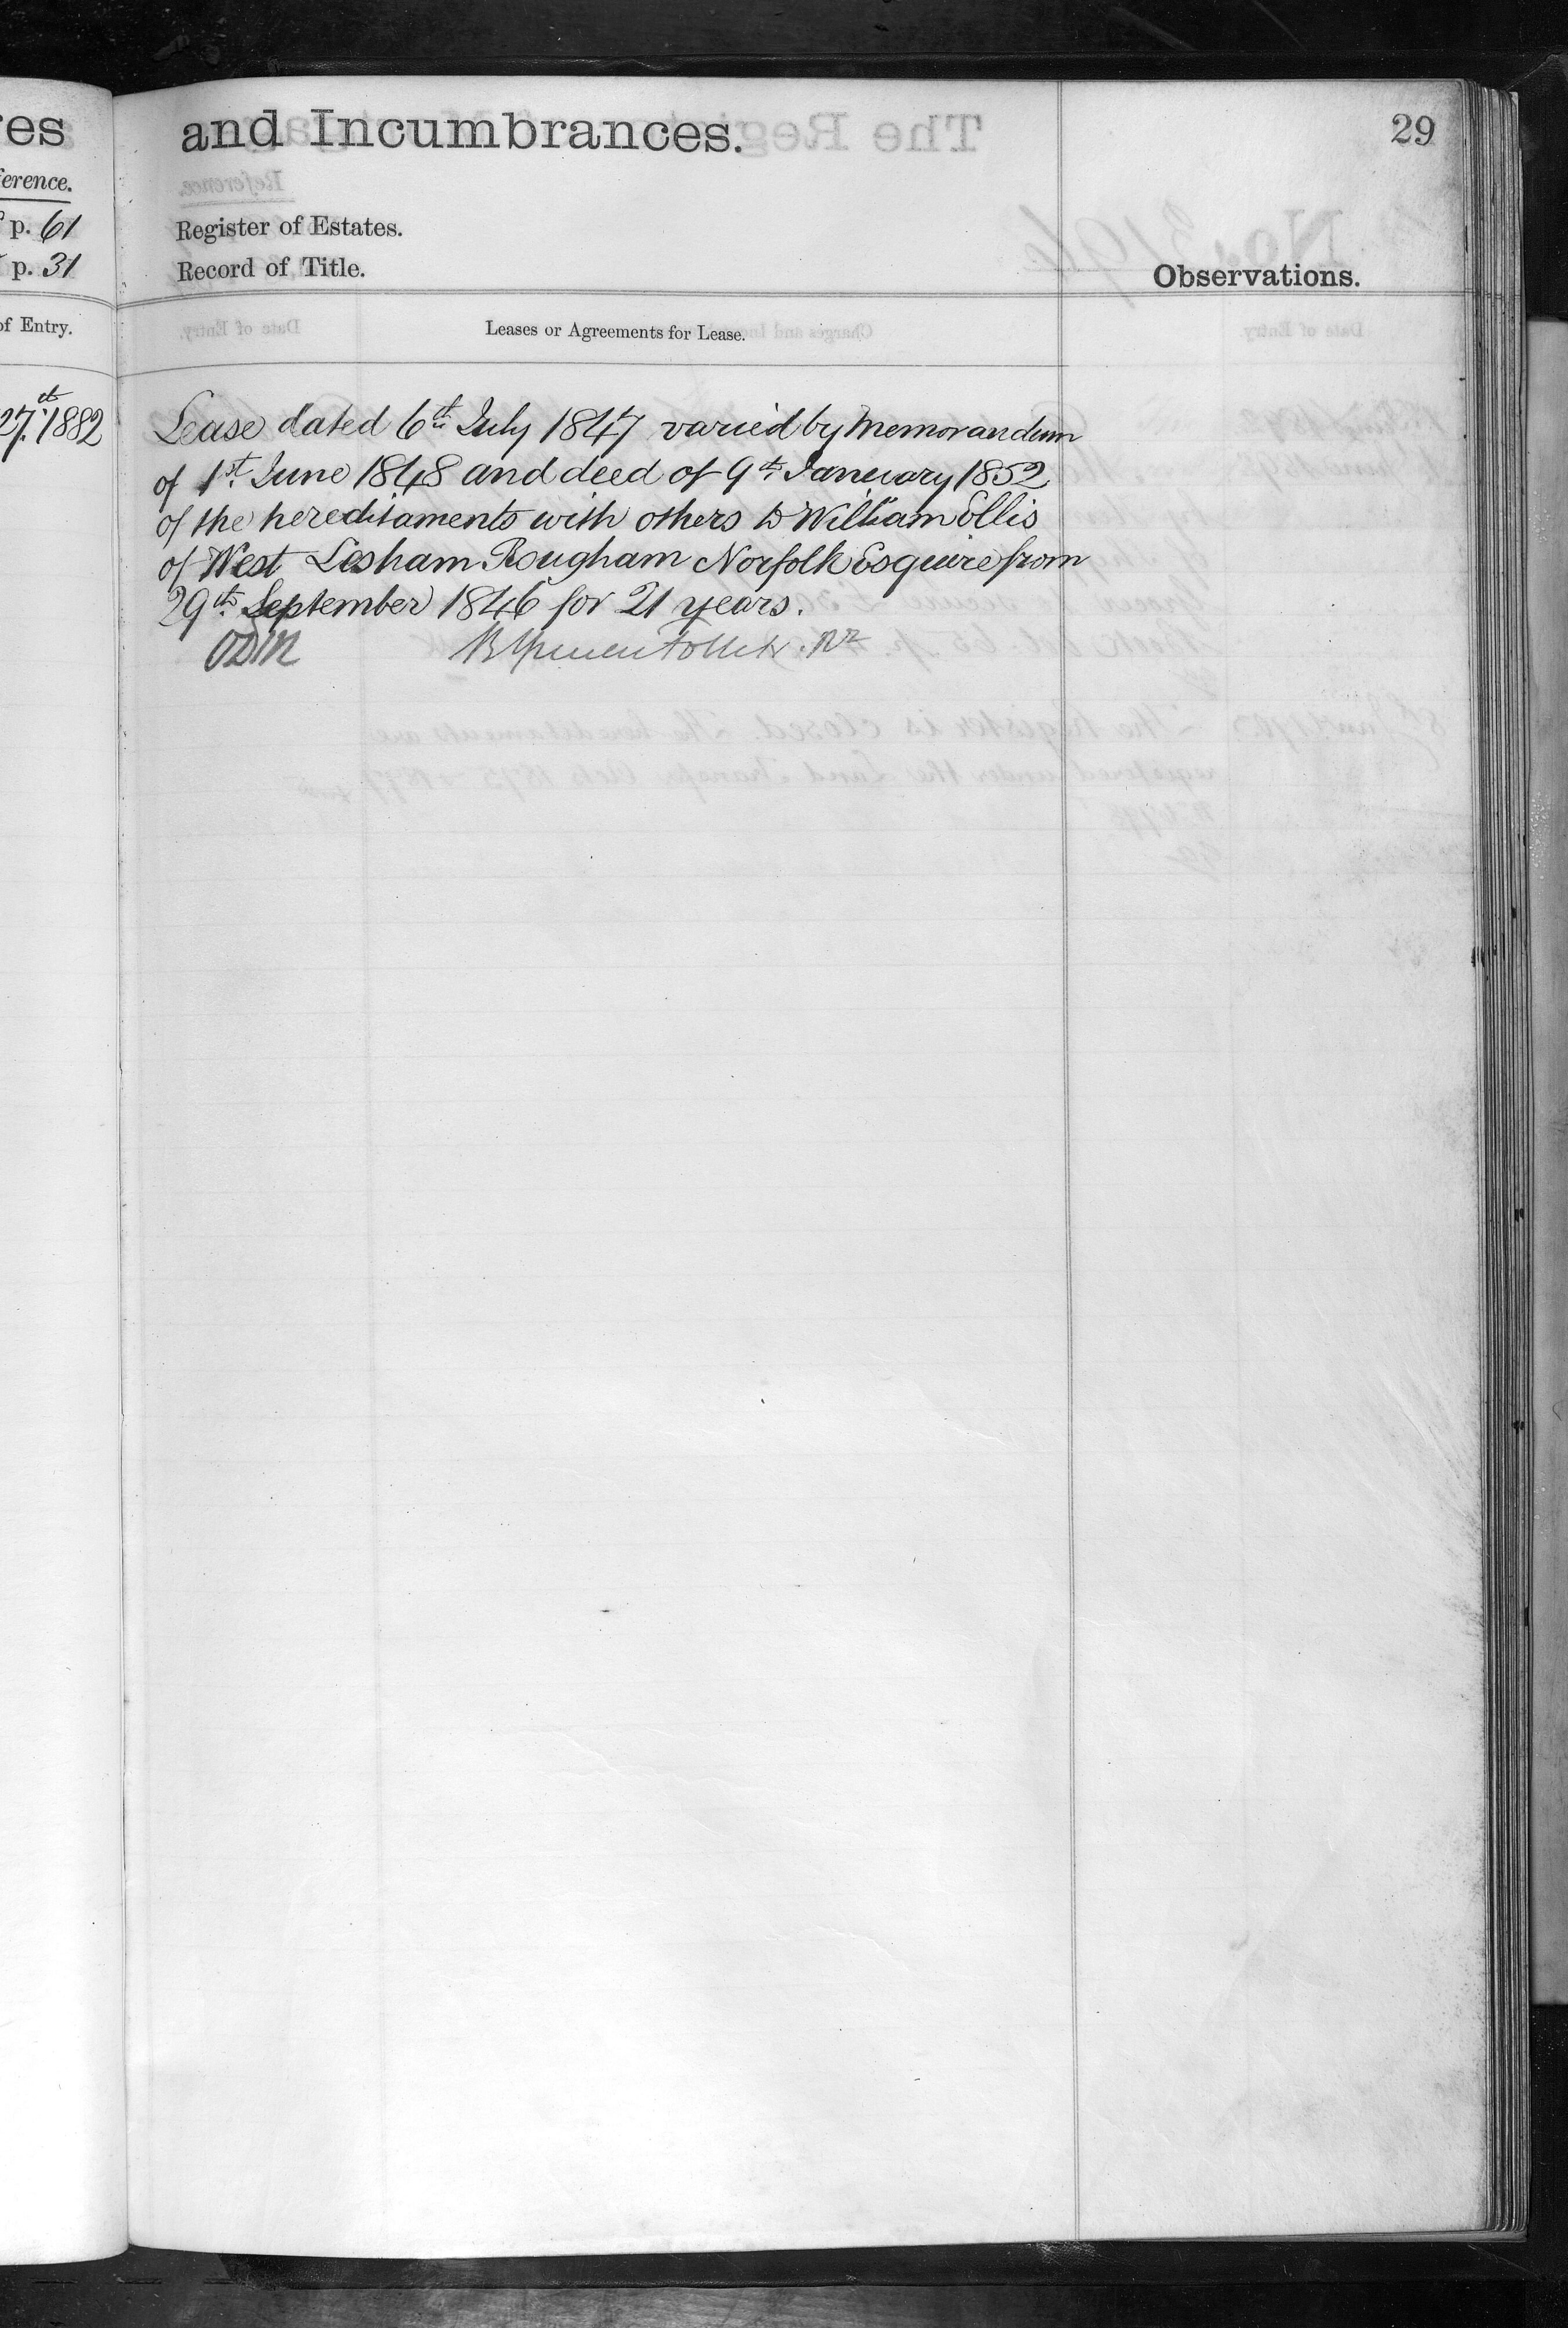 es
and Incumbrances.
29
erence.
p. 61
Register of Estates.
p. 31
Record of Title.
Observations.
of Entry.
Leases or Agreements for Lease.
27th 1882
Lease dated 6th July 1847 varied by Memorandum
of 1st June 1848 and deed of 9th January 1852
of the hereditaments with others to William Ellis
of West Lesham Rougham Norfolk Esquire from
29th September 1846 for 21 years.